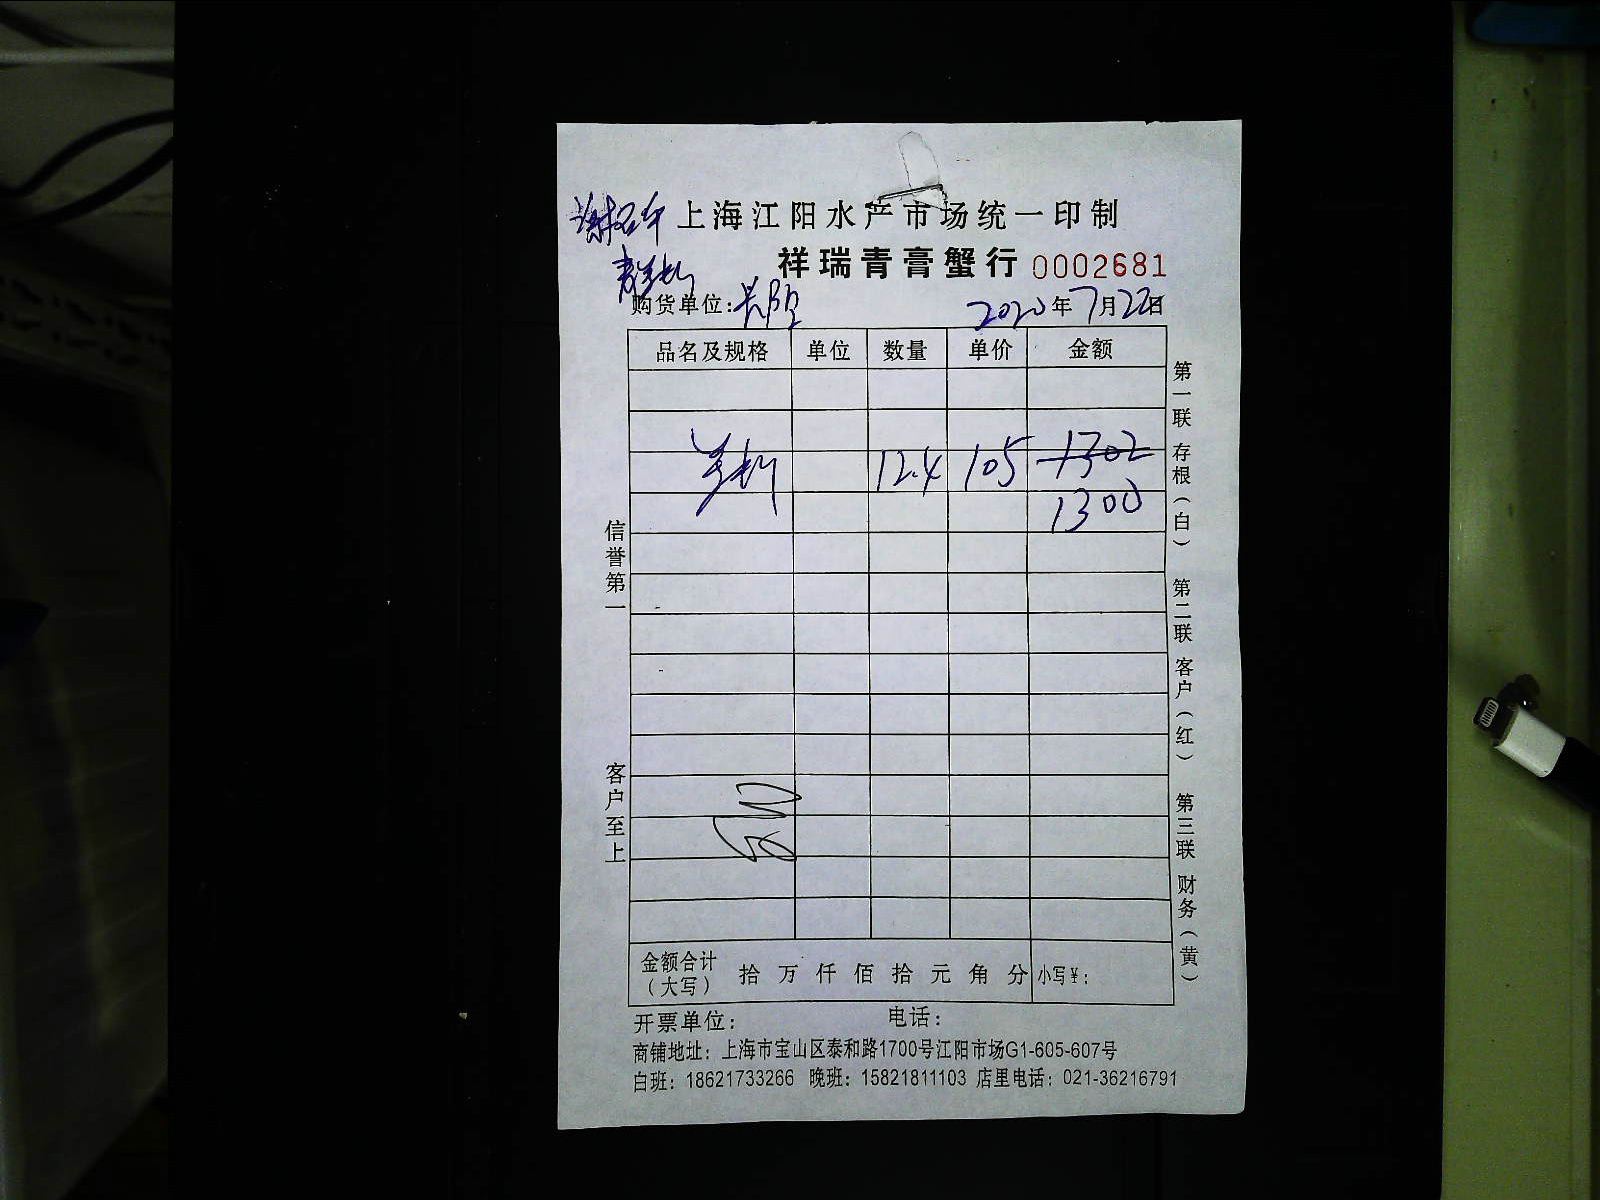 上海江阳水产市场统一印制
祥瑞青膏蟹行 0002681
购货单位: 2020年7月22日
品名及规格 单位 数量 单价 金额
12.4 105 1302
1300
信誉第一
客户至上
第一联 存根(白)
第二联 客户(红)
第三联 财务(黄)
金额合计(大写) 拾 万 仟 佰 拾 元 角 分 小写¥:
开票单位: 电话:
商铺地址: 上海市宝山区泰和路1700号江阳市场G1-605-607号
白班: 18621733266 晚班: 15821811103 店里电话: 021-36216791